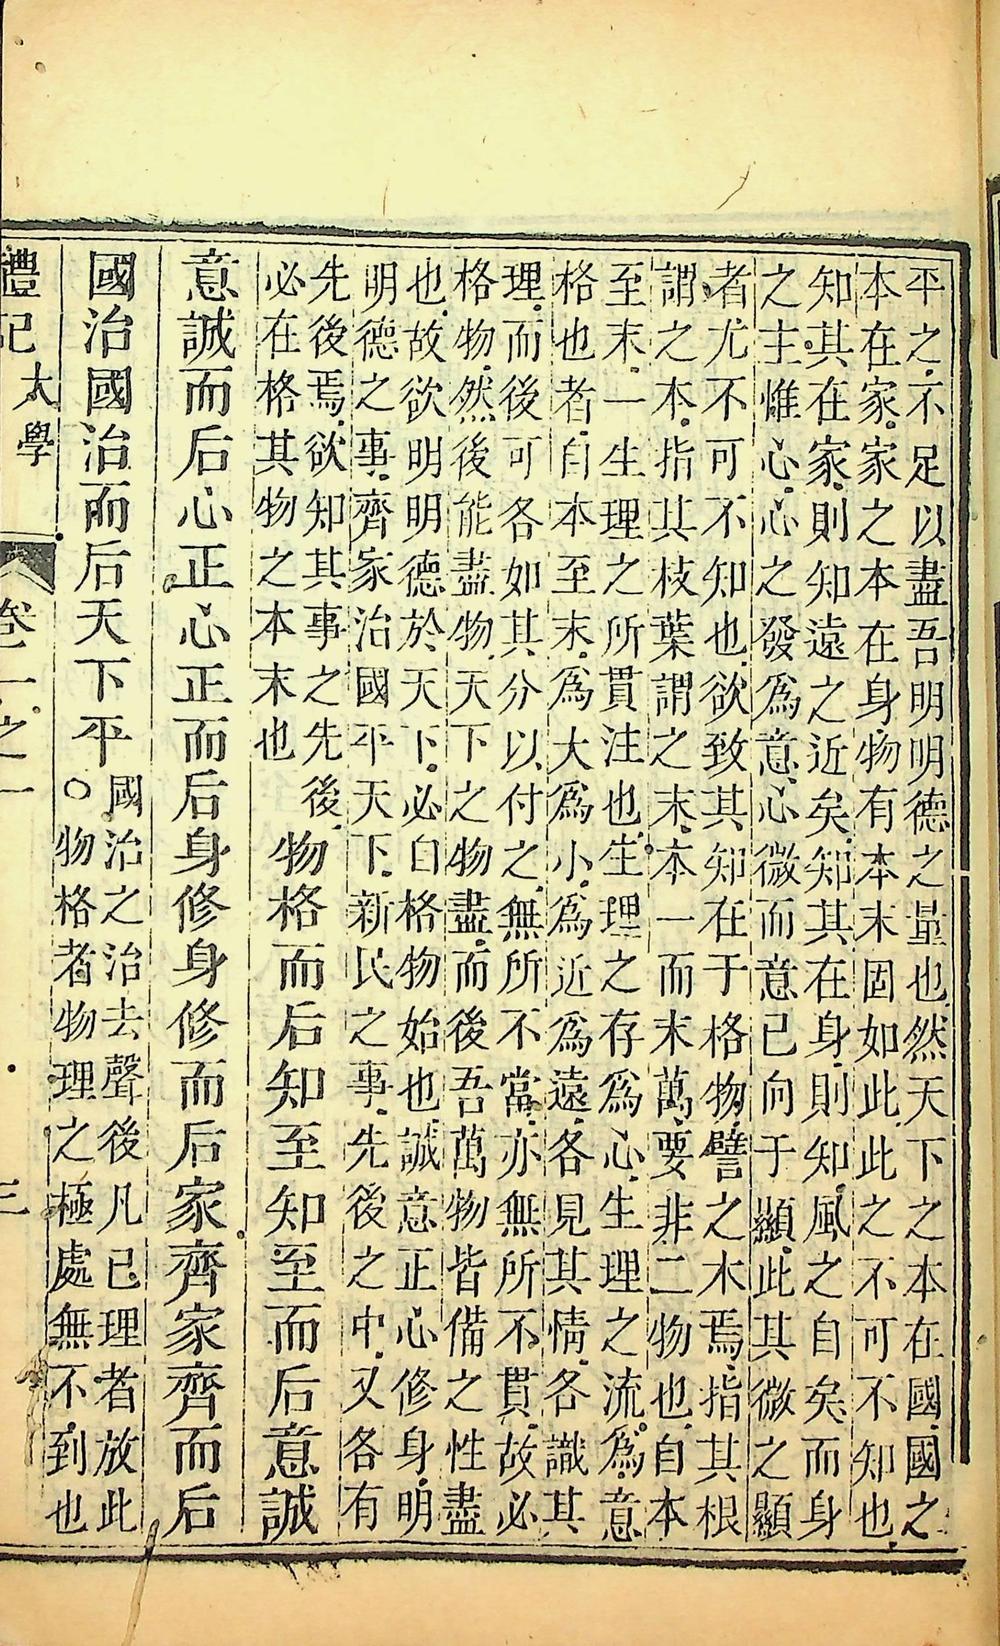 平之不足以盡吾明明德之量也然天下之本在國國之
本在家家之本在身物有本末固如此此之不可不知也
知其在家則知遠之近矣知其在身則知風之自矣而身
之主惟心心之發爲意心微而意已向于顯此其微之顯
者尤不可不知也欲致其知在于格物譬之木焉指其根
謂之本指其枝葉謂之末本一而末萬要非二物也自本
至末一生理之所貫注也生理之存爲心生理之流爲意
格也者自本至末爲大爲小爲近爲遠各見其情各識其
理而後可各如其分以付之無所不當亦無所不貫故必
格物然後能盡物天下之物盡而後吾萬物皆備之性盡
也故欲明明德於天下必自格物始也誠意正心修身明
明德之事齊家治國平天下新民之事先後之中又各有
先後焉欲知其事之先後
必在格其物之本末也
物格而后知至知至而后意誠
意誠而后心正心正而后身修身修而后家齊家齊而后
國治國治而后天下平
國治之治去聲後凡已理者放此
○物格者物理之極處無不到也
禮記 大學 卷一之一 三